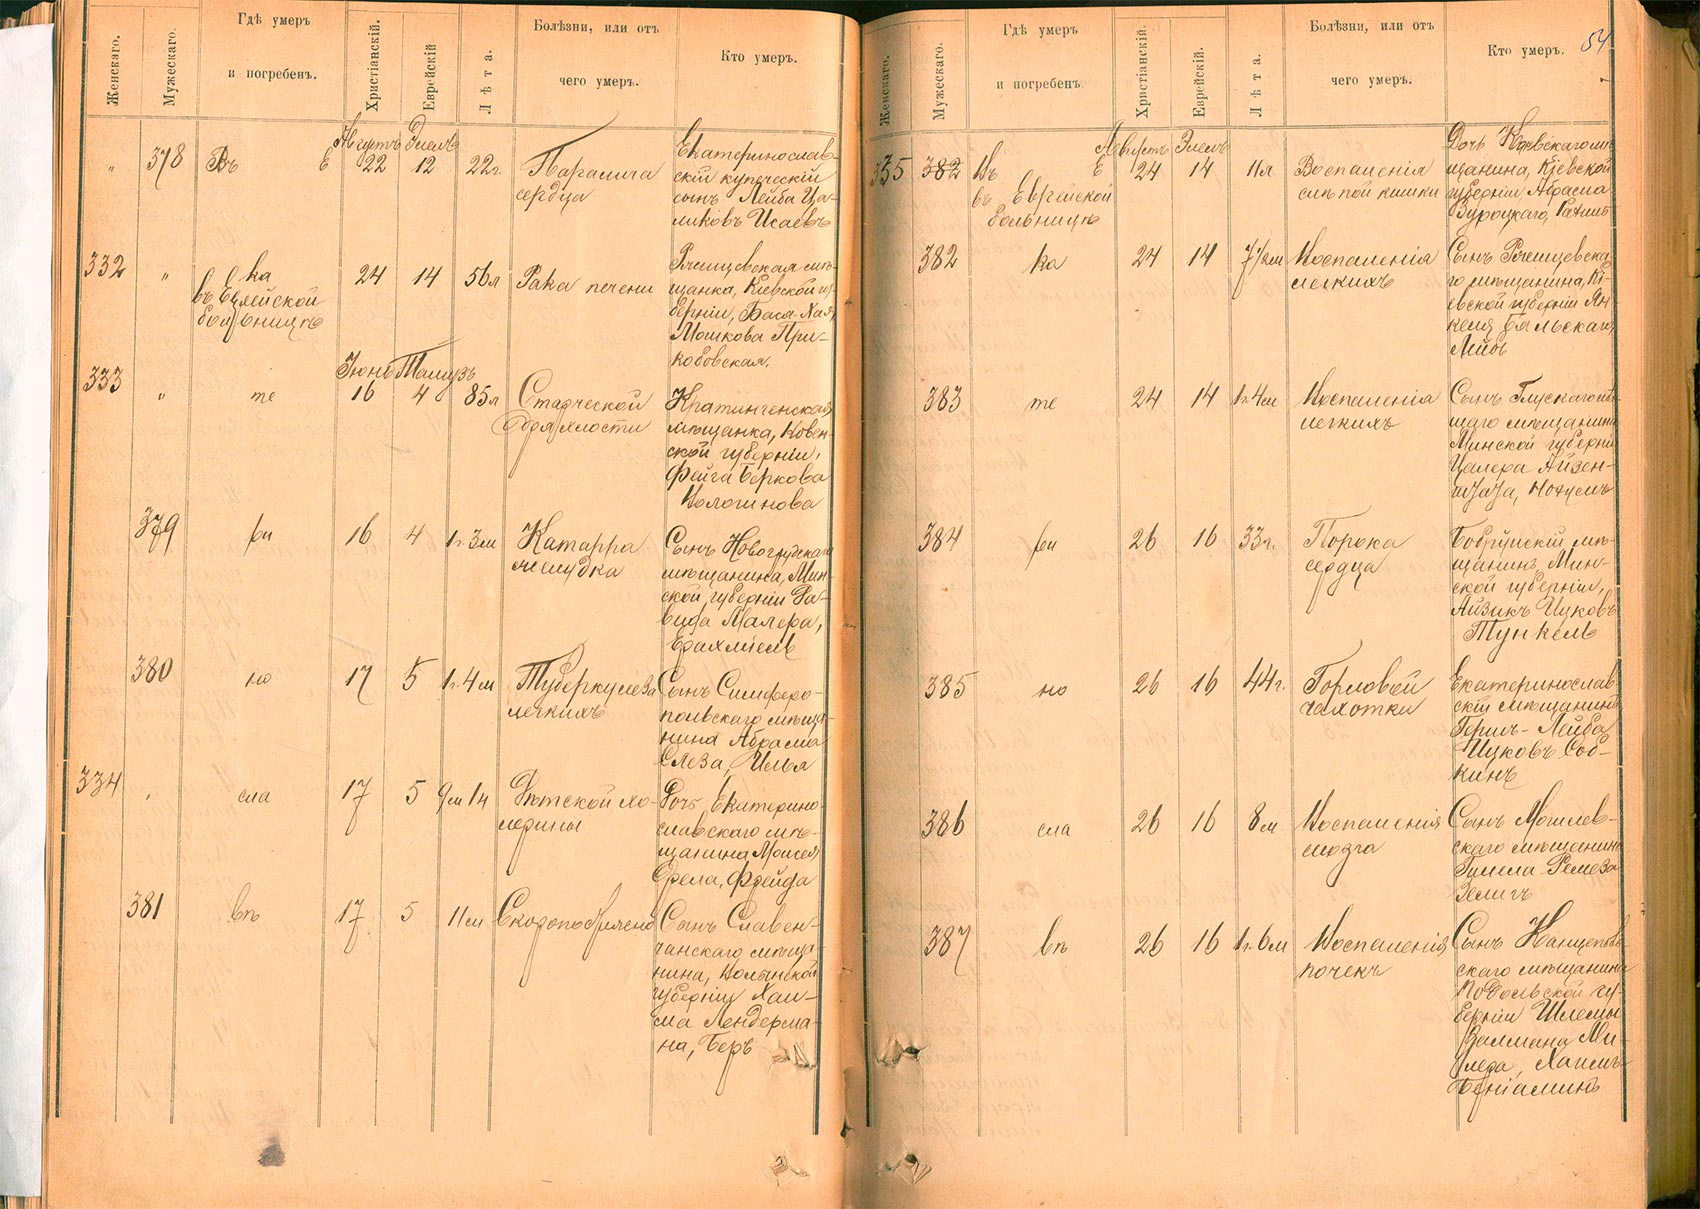 Женскаго.
Мужескаго.
Гдѣ умеръ
и погребенъ.
Христіанскій.
Еврейскій
Лѣта.
Болѣзни, или отъ
чего умеръ.
Кто умеръ.
Августъ Элелъ
" 378 Въ Е 22 12 22г.
Паралича
сердца
Екатеринослав-
скій купеческій
сынъ Лейба Ца-
ликовъ Исаевъ
332 " ка 24 14 56л Рака печени
въ Еврейской
больницѣ
мѣ-
щанка, Кіевской гу-
берніи, Бася-Хая
Мошкова При-
Іюнь Тамузъ
333 " те 16 4 85л
Старческой
дряхлости
Кратингенская
мѣщанка, Ковен-
ской губерніи,
Фейга Беркова
379 ри 16 4 1г.3м
Катарра
желудка
Сынъ Новогрудскаго
мѣщанина, Мин-
ской губерніи Да-
вида Малера,
Ерахміель
380 но 17 5 1г.4м
Туберкулеза
легкихъ
Сынъ Симферо-
польскаго мѣща-
нина Абрама
Слеза, Илья
334 сла 17 5 9м 1ч
Дѣтской хо-
лерины
Дочь Екатерино-
славскаго мѣ-
щанина Моисея
Фрейда
381 въ 17 5 11м Скоропостижно
Сынъ Славен-
чанскаго мѣща-
нина, Волынской
губерніи Хаи-
ма Лендерма-
на, Беръ
54
Женскаго.
Мужескаго.
Гдѣ умеръ
и погребенъ
Христіанскій.
Еврейскій.
Лѣта.
Болѣзни, или отъ
чего умеръ.
Кто умеръ.
Августъ Элелъ
335 382 Въ Е 24 14 11л
въ Еврейской
больницѣ
Воспаленія
слѣпой кишки
Дочь Кіевскаго мѣ-
щанина, Кіевской
губерніи Абрама
382 ка 24 14 7½м
Воспаленія
легкихъ
Сынъ Ржищевска-
го мѣщанина, Кі-
евской губерніи Ян-
келя Бальскаго
Лейбъ
383 те 24 14 1г.4м
Воспаленія
легкихъ
Сынъ Глускаго
мѣщанина
Минской губерніи
Айзен-
384 ри 26 16 33г.
Порока
сердца
Бобруйскій мѣ-
щанинъ, Мин-
ской губерніи,
Айзикъ Ицковъ
Тункель
385 но 26 16 44г.
Горловой
чахотки
Екатеринослав-
скій мѣщанинъ
Герщъ-Лейба
Ицковъ Соб-
кинъ
386 сла 26 16 8м
Воспаленія
мозга
Сынъ Могилев-
скаго мѣщанина
Гилела Ремеза
Зеликъ
387 въ 26 16 1г.6м
Воспаленія
почекъ
Сынъ
скаго мѣщанина
Подольской гу-
берніи Шлемы
Залмана Ми-
лера, Хаимъ-
Беніаминъ